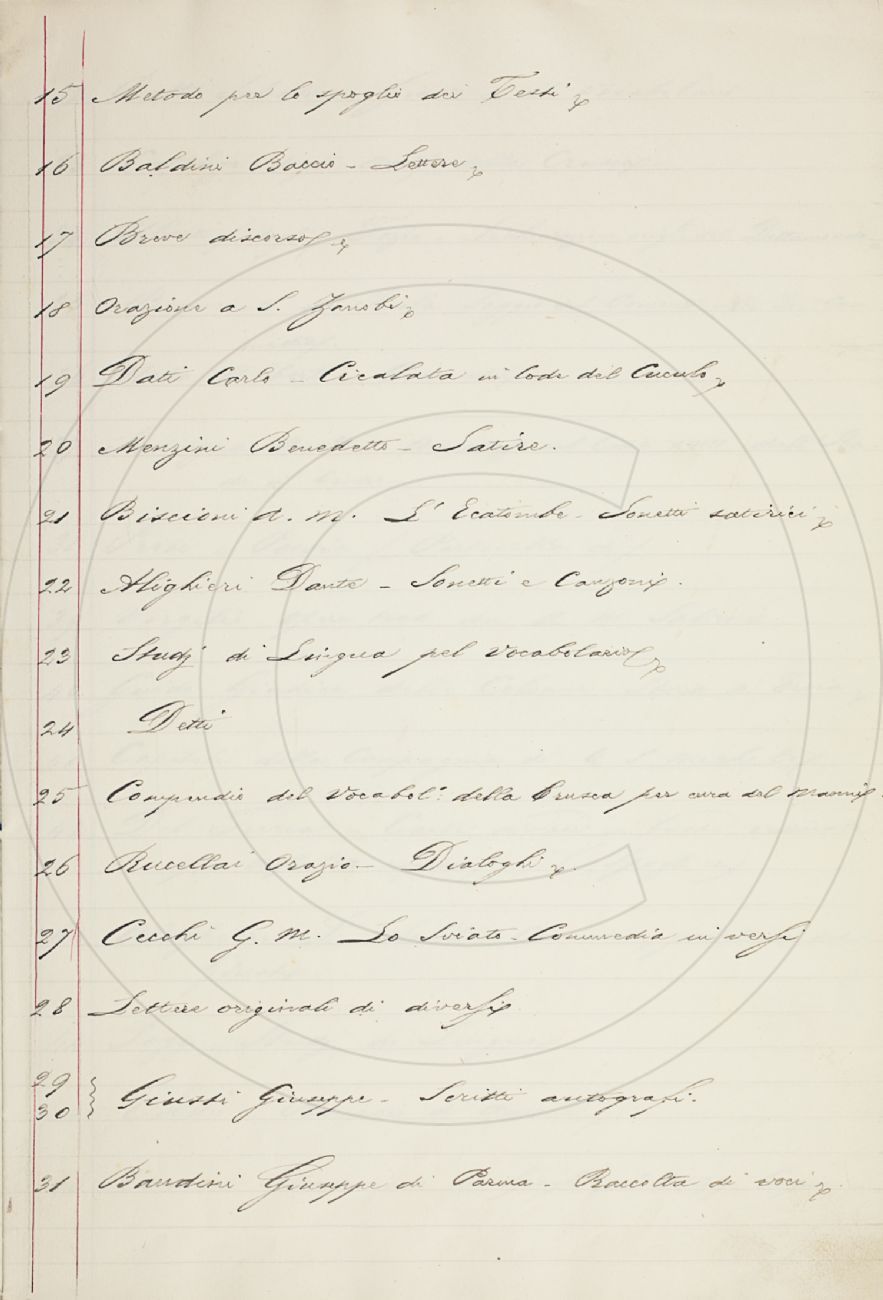 15 Metodo per lo spoglio dei Testi
16 Baldini Baccio - Lettere
17 Breve discorso
18 Orazione a S. Zanobi
19 Dati Carlo - Cicalata in lode del Cuculo
20 Menzini Benedetto - Satire.
21 Biscioni A. M. L' Ecatombe - Sonetti satirici
22 Alighieri Dante - Sonetti e Canzoni.
23 Studj di Lingua pel Vocabolario
24 Detti
25 Compendio del Vocabol.º della Crusca per cura del Manni.
26 Rucellai Orazio - Dialoghi
27 Cecchi G. M. Lo Sviato - Commedia in versi
28 Lettere originali di diversi
29
30 } Giusti Giuseppe - Scritti autografi.
31 Bandini Giuseppe di Parma - Raccolta di voci